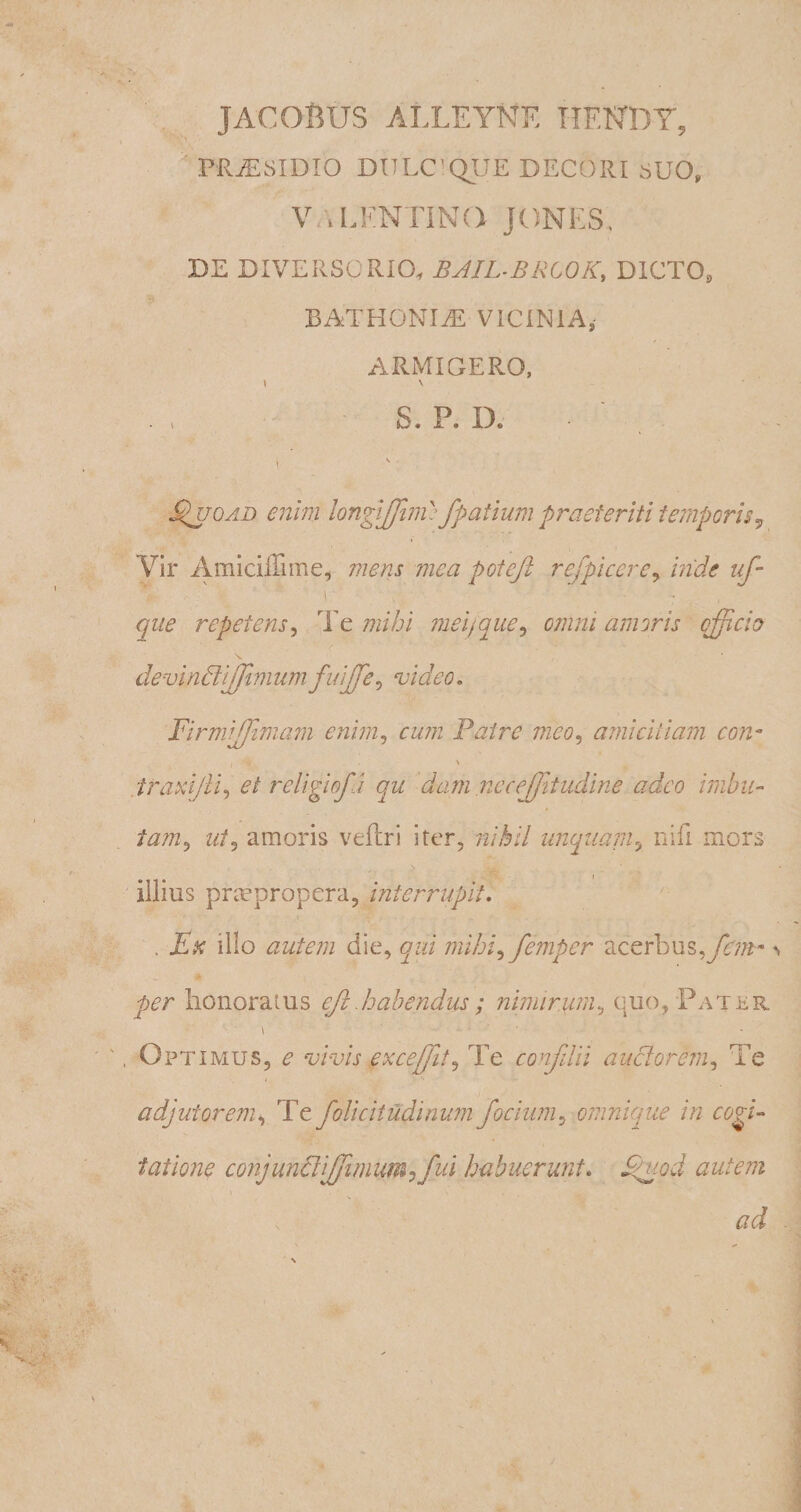 JACOBUS ALLEYNE HENDY,
PRÆSIDIO DULC'QUE DECORI SUO,
VALENTINO JONES,
DE DIVERSORIO, BAIL-BROOK, DICTO,
BATHONIÆ VICINIA,
ARMIGERO,
S. P. D.
QUOAD enim longiſſimè ſpatium praeteriti temporis,
Vir Amiciſſime, mens mea poteſt reſpicere, inde uſ-
que repetens, Te mihi meiſque, omni amoris officio
devinctiſſimum fuiſſe, video.
Firmiſſimam enim, cum Patre meo, amicitiam con-
traxiſti, et religioſâ quâdam neceſſitudine adeo imbu-
tam, ut, amoris veſtri iter, nihil unquam, niſi mors
illius præpropera, interrupit.
Ex illo autem die, qui mihi, ſemper acerbus, ſem-
per honoratus eſt habendus; nimirum, quo, PATER
OPTIMUS, e vivis exceſſit, Te conſilii auctorem, Te
adjutorem, Te ſolicitûdinum ſocium, omnique in cogi-
tatione conjunctiſſimum, ſui habuerunt. Quod autem
ad